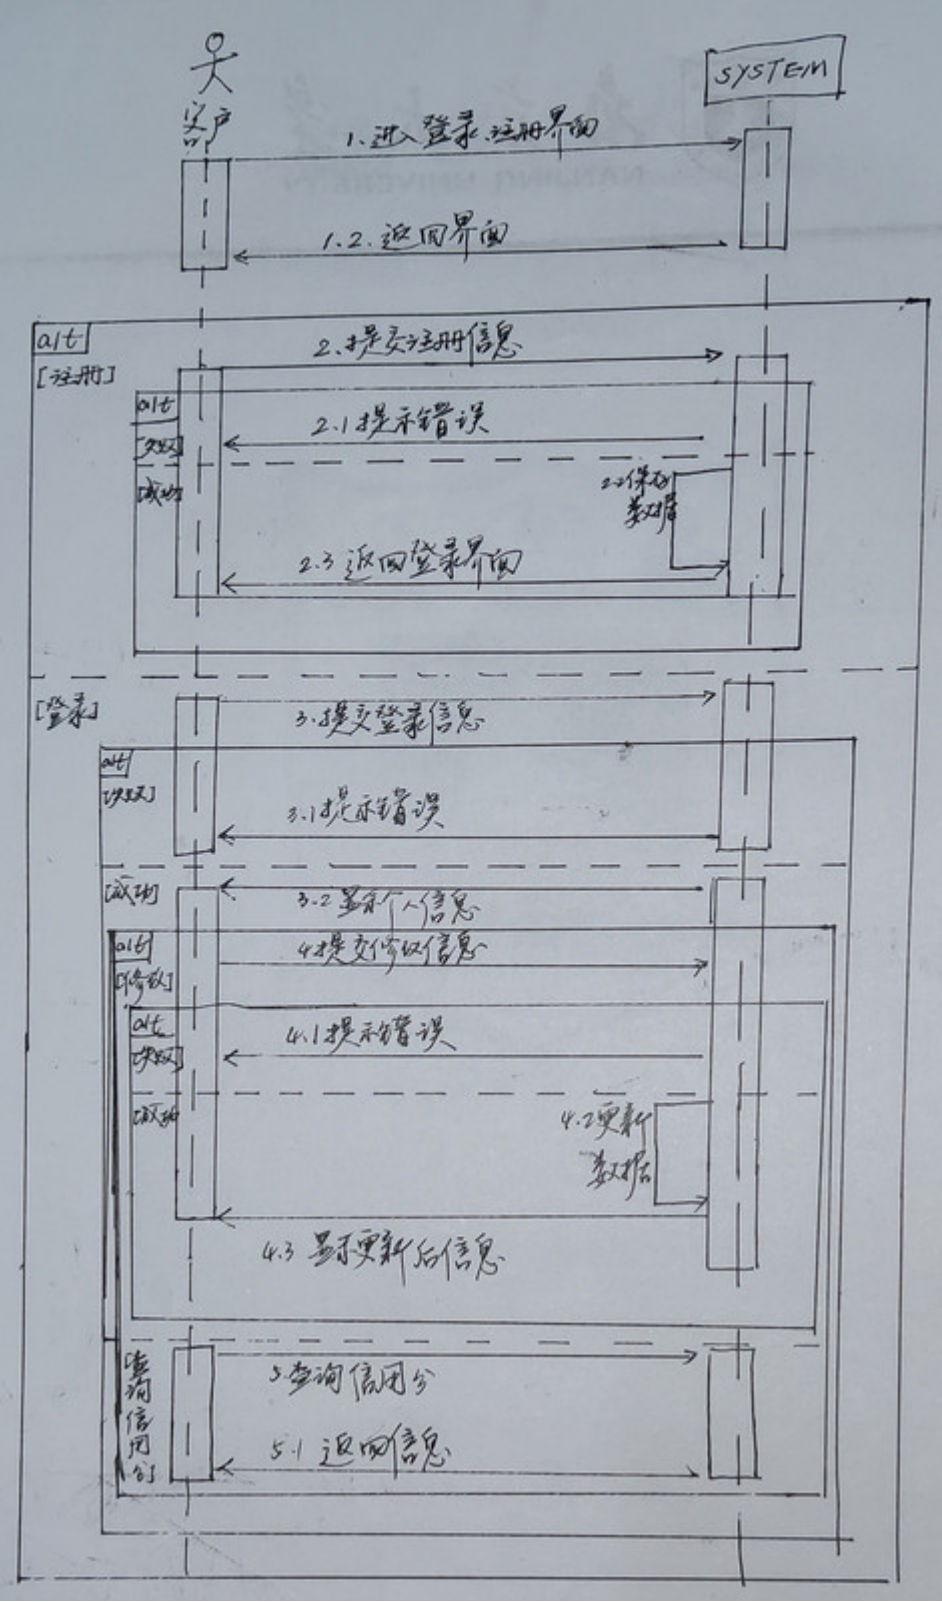 客户
SYSTEM
1.进入登录、注册界面
1.2.返回界面
alt
[注册]
2.提交注册信息
alt
[失败]
2.1提示错误
[成功]
2.2保存
数据
2.3 返回登录界面
[登录]
3.提交登录信息
alt
[失败]
3.1提示错误
[成功]
3.2 显示个人信息
alt
[修改]
4.提交修改信息
alt
[失败]
4.1提示错误
[成功]
4.2更新
数据
4.3 显示更新后信息
[查询信用分]
5.查询信用分
5.1 返回信息